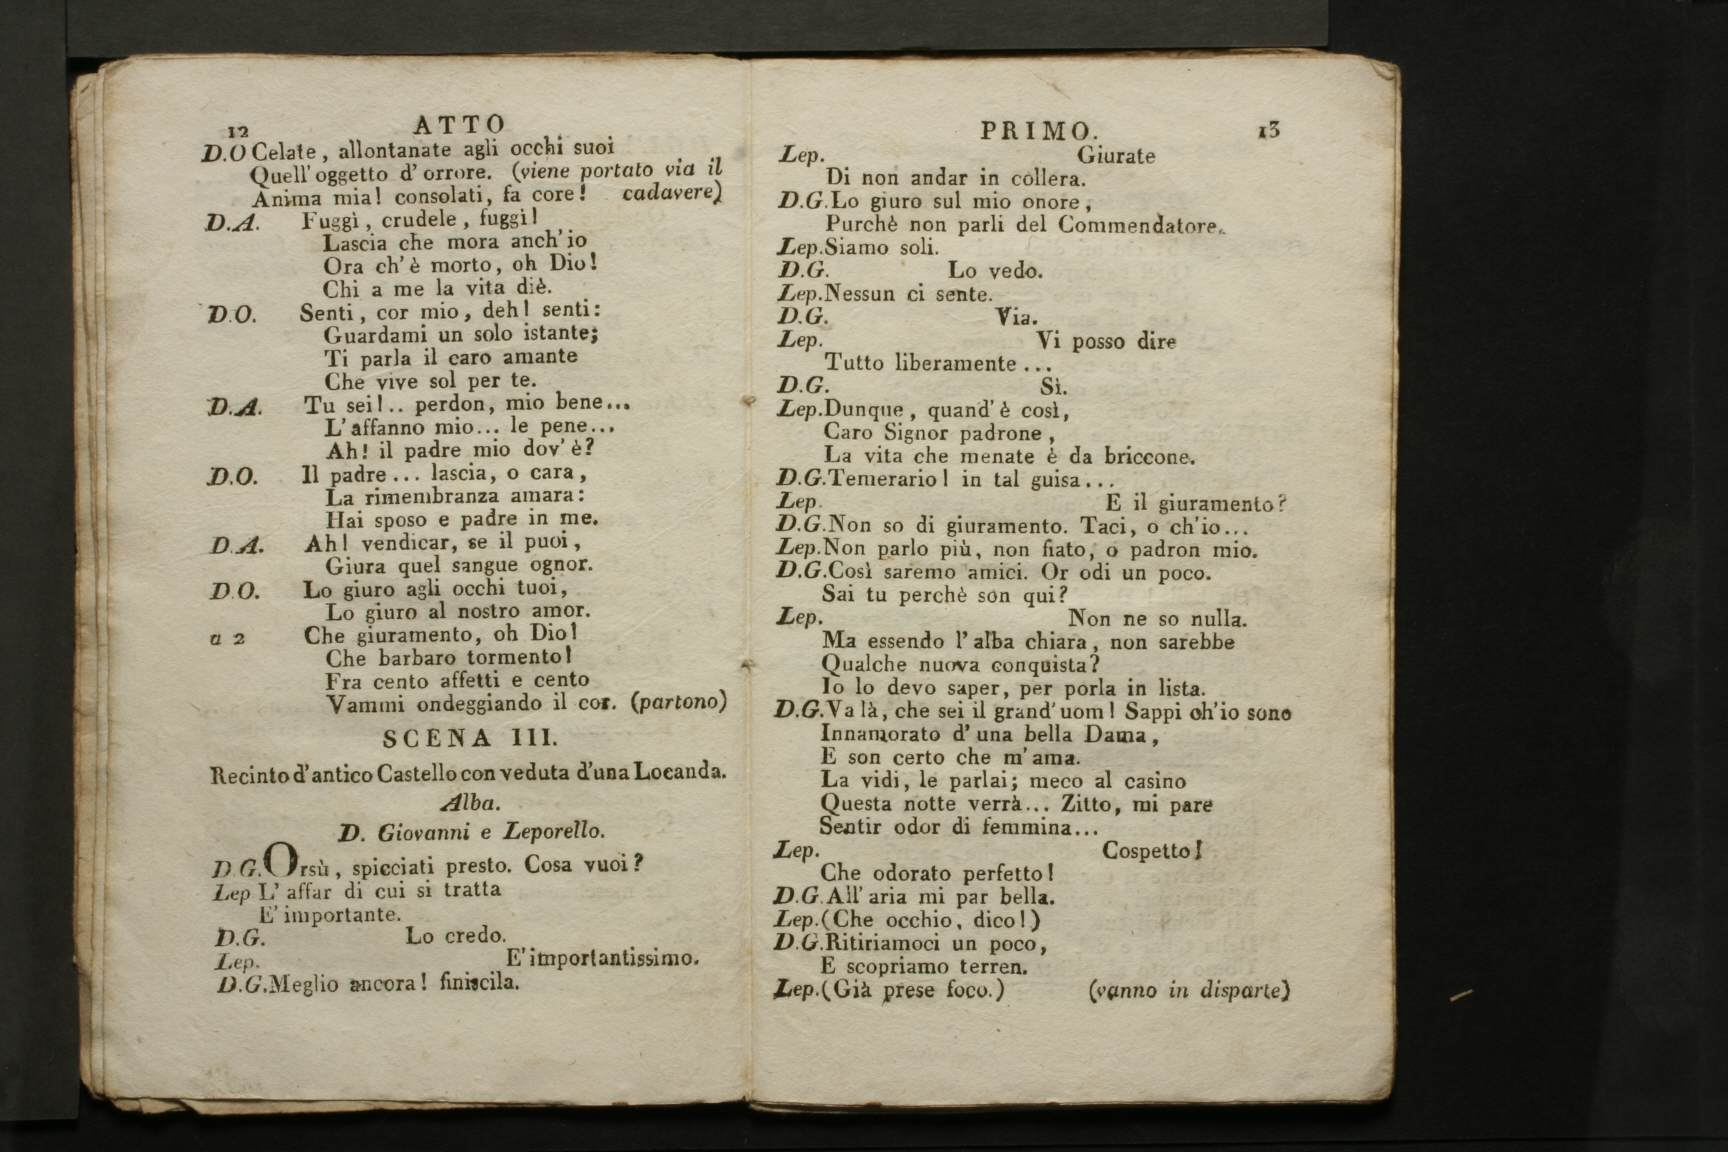 12 ATTO
D.O Celate, allontanate agli occhi suoi
Quell'oggetto d'orrore. (viene portato via il
Anima mia! consolati, fa core! cadavere)
D.A. Fuggi, crudele, fuggi!
Lascia che mora anch'io
Ora ch'è morto, oh Dio!
Chi a me la vita diè.
D.O. Senti, cor mio, deh! senti:
Guardami un solo istante;
Ti parla il caro amante
Che vive sol per te.
D.A. Tu sei!.. perdon, mio bene...
L'affanno mio... le pene...
Ah! il padre mio dov'è?
D.O. Il padre... lascia, o cara,
La rimembranza amara:
Hai sposo e padre in me.
D.A. Ah! vendicar, se il puoi,
Giura quel sangue ognor.
D.O. Lo giuro agli occhi tuoi,
Lo giuro al nostro amor.
a 2 Che giuramento, oh Dio!
Che barbaro tormento!
Fra cento affetti e cento
Vammi ondeggiando il cor. (partono)
SCENA III.
Recinto d'antico Castello con veduta d'una Locanda.
Alba.
D. Giovanni e Leporello.
D.G. Orsù, spicciati presto. Cosa vuoi?
Lep L'affar di cui si tratta
E' importante.
D.G. Lo credo.
Lep. E' importantissimo.
D.G. Meglio ancora! finiscila.
PRIMO. 13
Lep. Giurate
Di non andar in collera.
D.G. Lo giuro sul mio onore,
Purchè non parli del Commendatore.
Lep. Siamo soli.
D.G. Lo vedo.
Lep. Nessun ci sente.
D.G. Via.
Lep. Vi posso dire
Tutto liberamente...
D.G. Sì.
Lep. Dunque, quand'è così,
Caro Signor padrone,
La vita che menate è da briccone.
D.G. Temerario! in tal guisa...
Lep. E il giuramento?
D.G. Non so di giuramento. Taci, o ch'io...
Lep. Non parlo più, non fiato, o padron mio.
D.G. Così saremo amici. Or odi un poco.
Sai tu perchè son qui?
Lep. Non ne so nulla.
Ma essendo l'alba chiara, non sarebbe
Qualche nuova conquista?
Io lo devo saper, per porla in lista.
D.G. Va là, che sei il grand'uom! Sappi ch'io sono
Innamorato d'una bella Dama,
E son certo che m'ama.
La vidi, le parlai; meco al casino
Questa notte verrà... Zitto, mi pare
Sentir odor di femmina...
Lep. Cospetto!
Che odorato perfetto!
D.G. All'aria mi par bella.
Lep. (Che occhio, dico!)
D.G. Ritiriamoci un poco,
E scopriamo terren.
Lep. (Già prese foco.) (vanno in disparte)